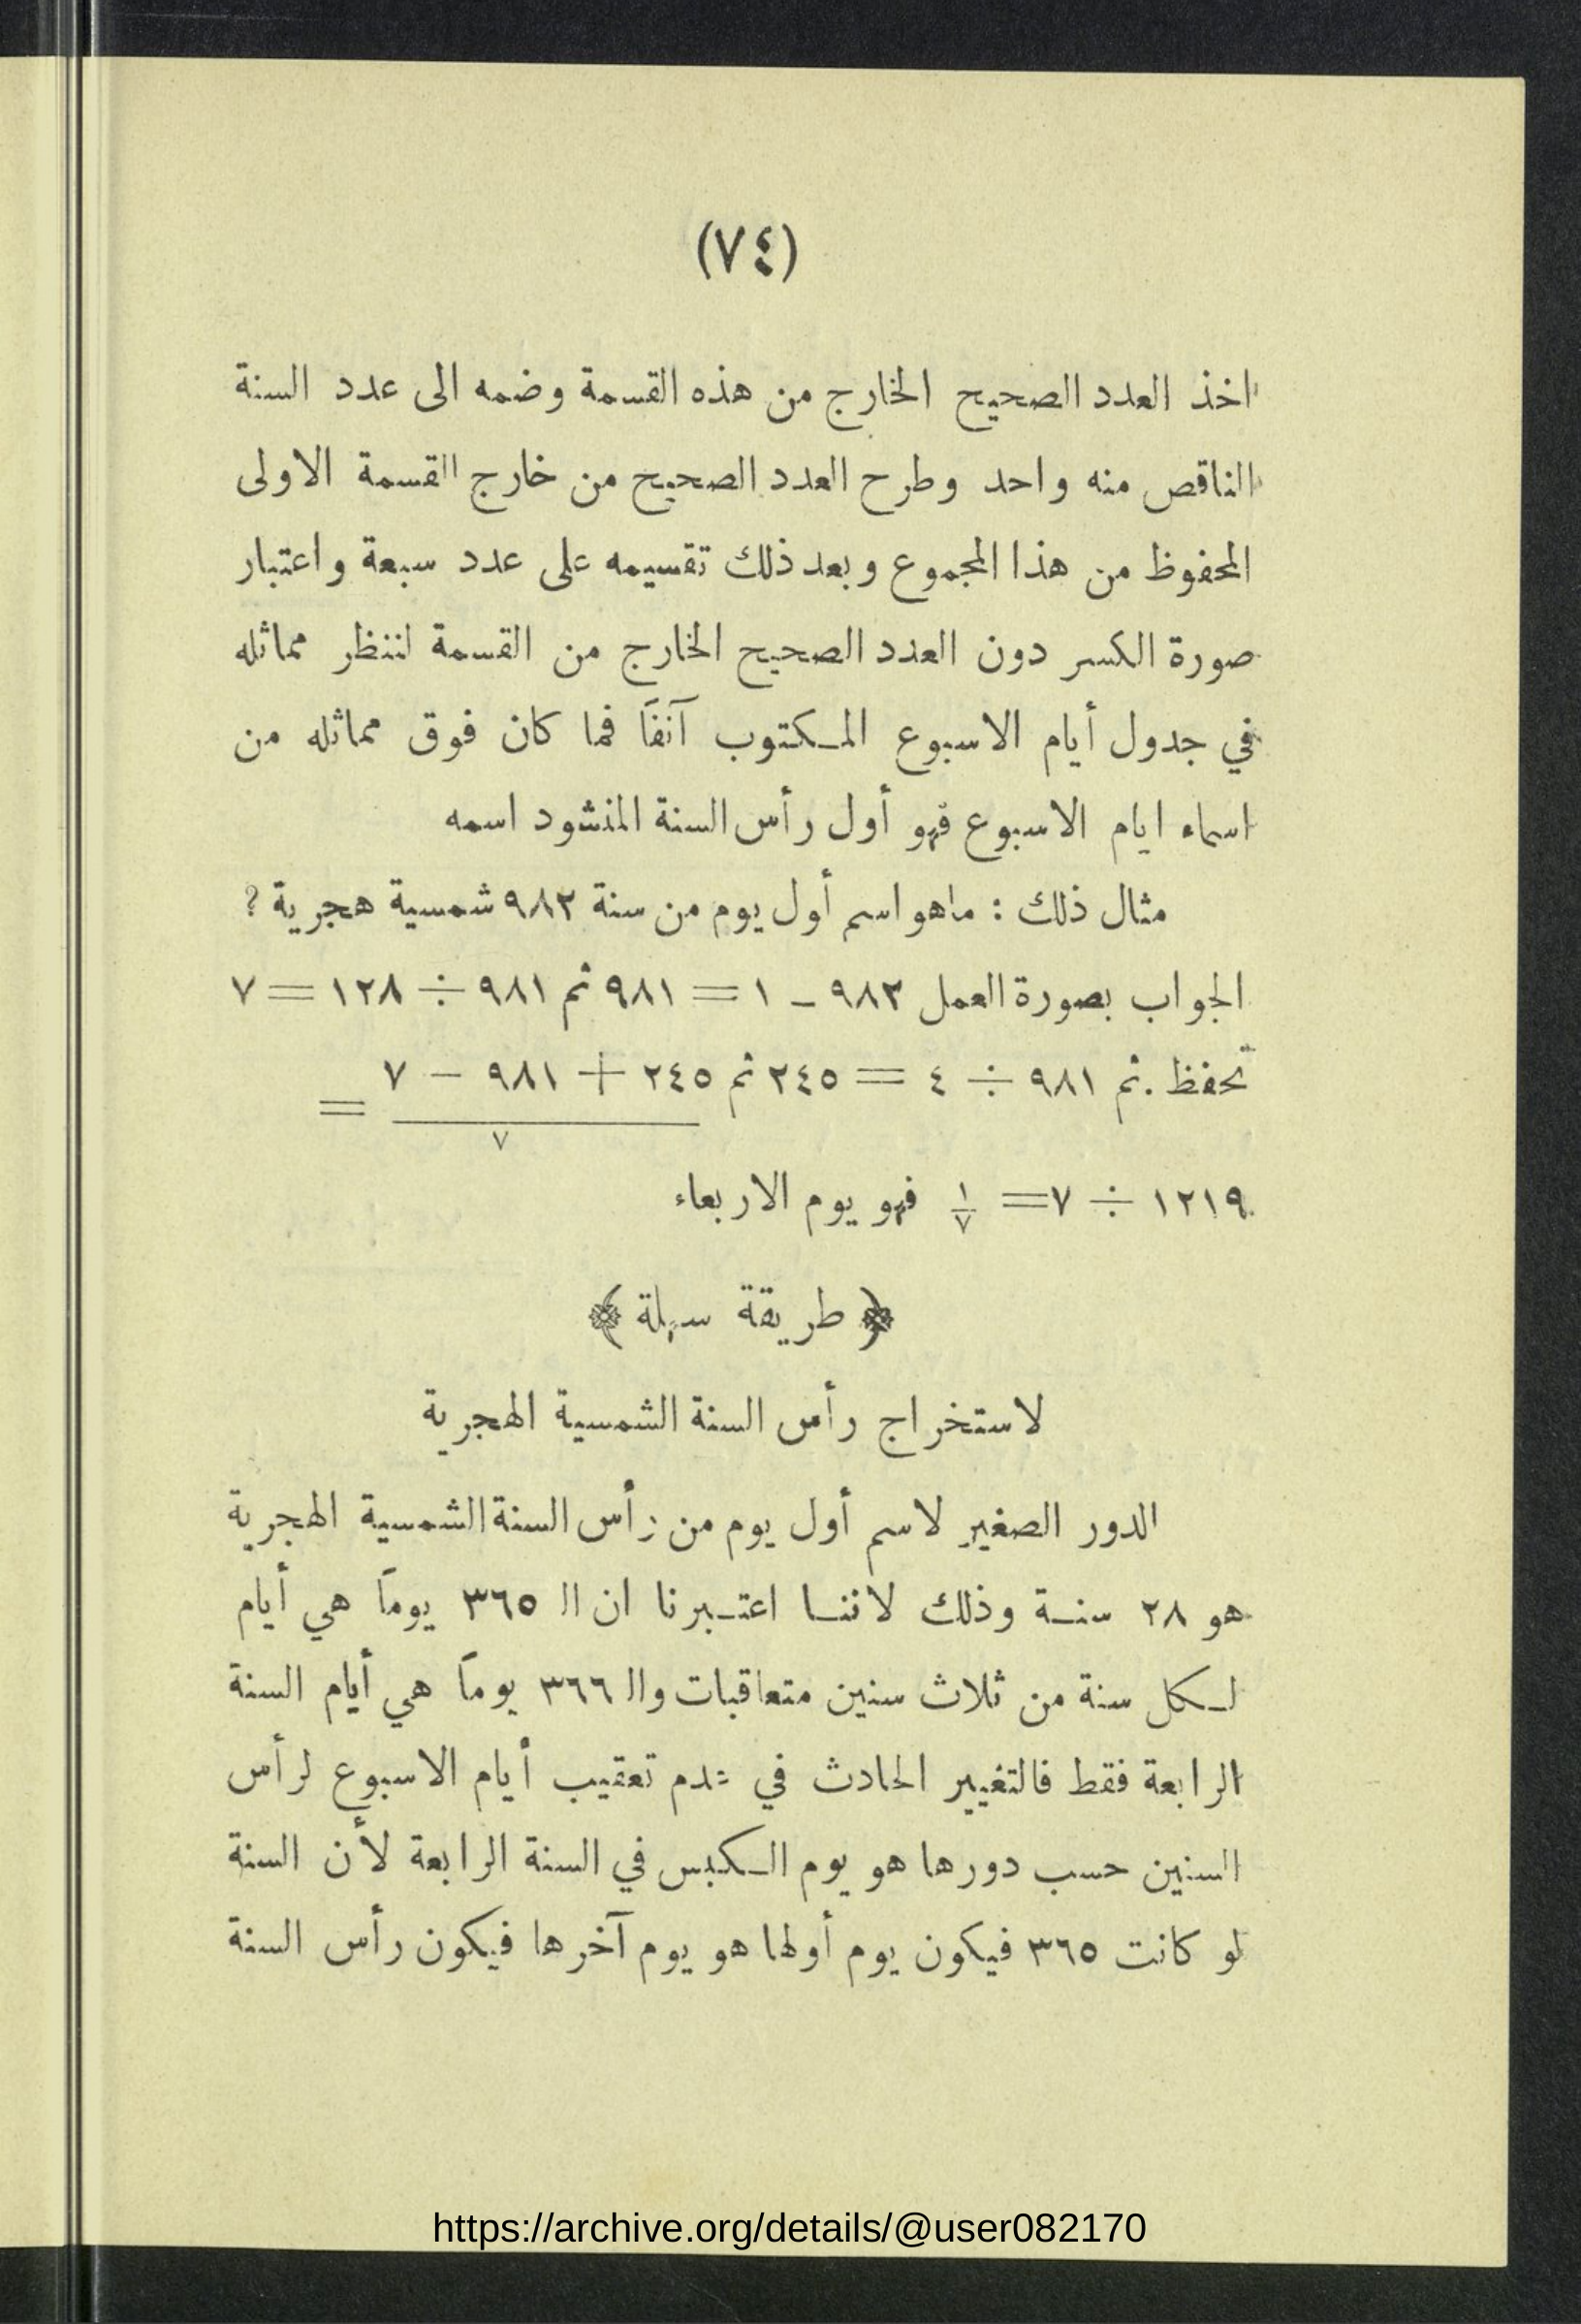 (٧٤)
اخذ العدد الصحيح الخارج من هذه القسمة وضمه الى عدد السنة
الناقص منه واحد وطرح العدد الصحيح من خارج القسمة الاولى
المحفوظ من هذا المجموع وبعد ذلك تقسيمه على عدد سبعة واعتبار
صورة الكسر دون العدد الصحيح الخارج من القسمة لننظر مماثله
في جدول أيام الاسبوع المكتوب آنفاً فما كان فوق مماثله من
اسماء ايام الاسبوع فهو أول رأس السنة المنشود اسمه
مثال ذلك : ماهو اسم أول يوم من سنة ٩٨٢ شمسية هجرية ؟
الجواب بصورة العمل ٩٨٢ - ١ = ٩٨١ ثم ٩٨١ ÷ ١٢٨ = ٧
تحفظ . ثم ٩٨١ ÷ ٤ = ٢٤٥ ثم ٢٤٥ + ٩٨١ - ٧ =
٧
١٢١٩ ÷ ٧ = ١/٧ فهو يوم الاربعاء
﴿ طريقة سهلة ﴾
لاستخراج رأس السنة الشمسية الهجرية
الدور الصغير لاسم أول يوم من رأس السنة الشمسية الهجرية
هو ٢٨ سنة وذلك لاننا اعتبرنا ان الـ ٣٦٥ يوماً هي أيام
لكل سنة من ثلاث سنين متعاقبات والـ ٣٦٦ يوماً هي أيام السنة
الرابعة فقط فالتغيير الحادث في عدم تعقيب أيام الاسبوع لرأس
السنين حسب دورها هو يوم الكبس في السنة الرابعة لأن السنة
لو كانت ٣٦٥ فيكون يوم أولها هو يوم آخرها فيكون رأس السنة
https://archive.org/details/@user082170